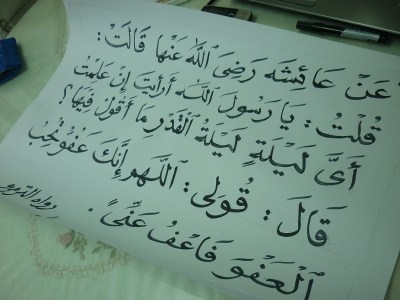 عَنْ عَائِشَة رَضِىَ اللّٰه عَنْهَا قَالَتْ:
قُلْتُ: يَا رَسُولَ اللّٰه أَرَأَيْتَ إِنْ عَلِمْتُ
أَىَّ لَيْلَةٍ لَيْلَةُ الْقَدْرِ مَا أَقُولُ فِيهَا؟
قَالَ: قُولِى: اللّٰهم إِنَّكَ عَفُوٌّ تُحِبُّ
الْعَفْوَ فَاعْفُ عَنِّى.
رواه الترمذى